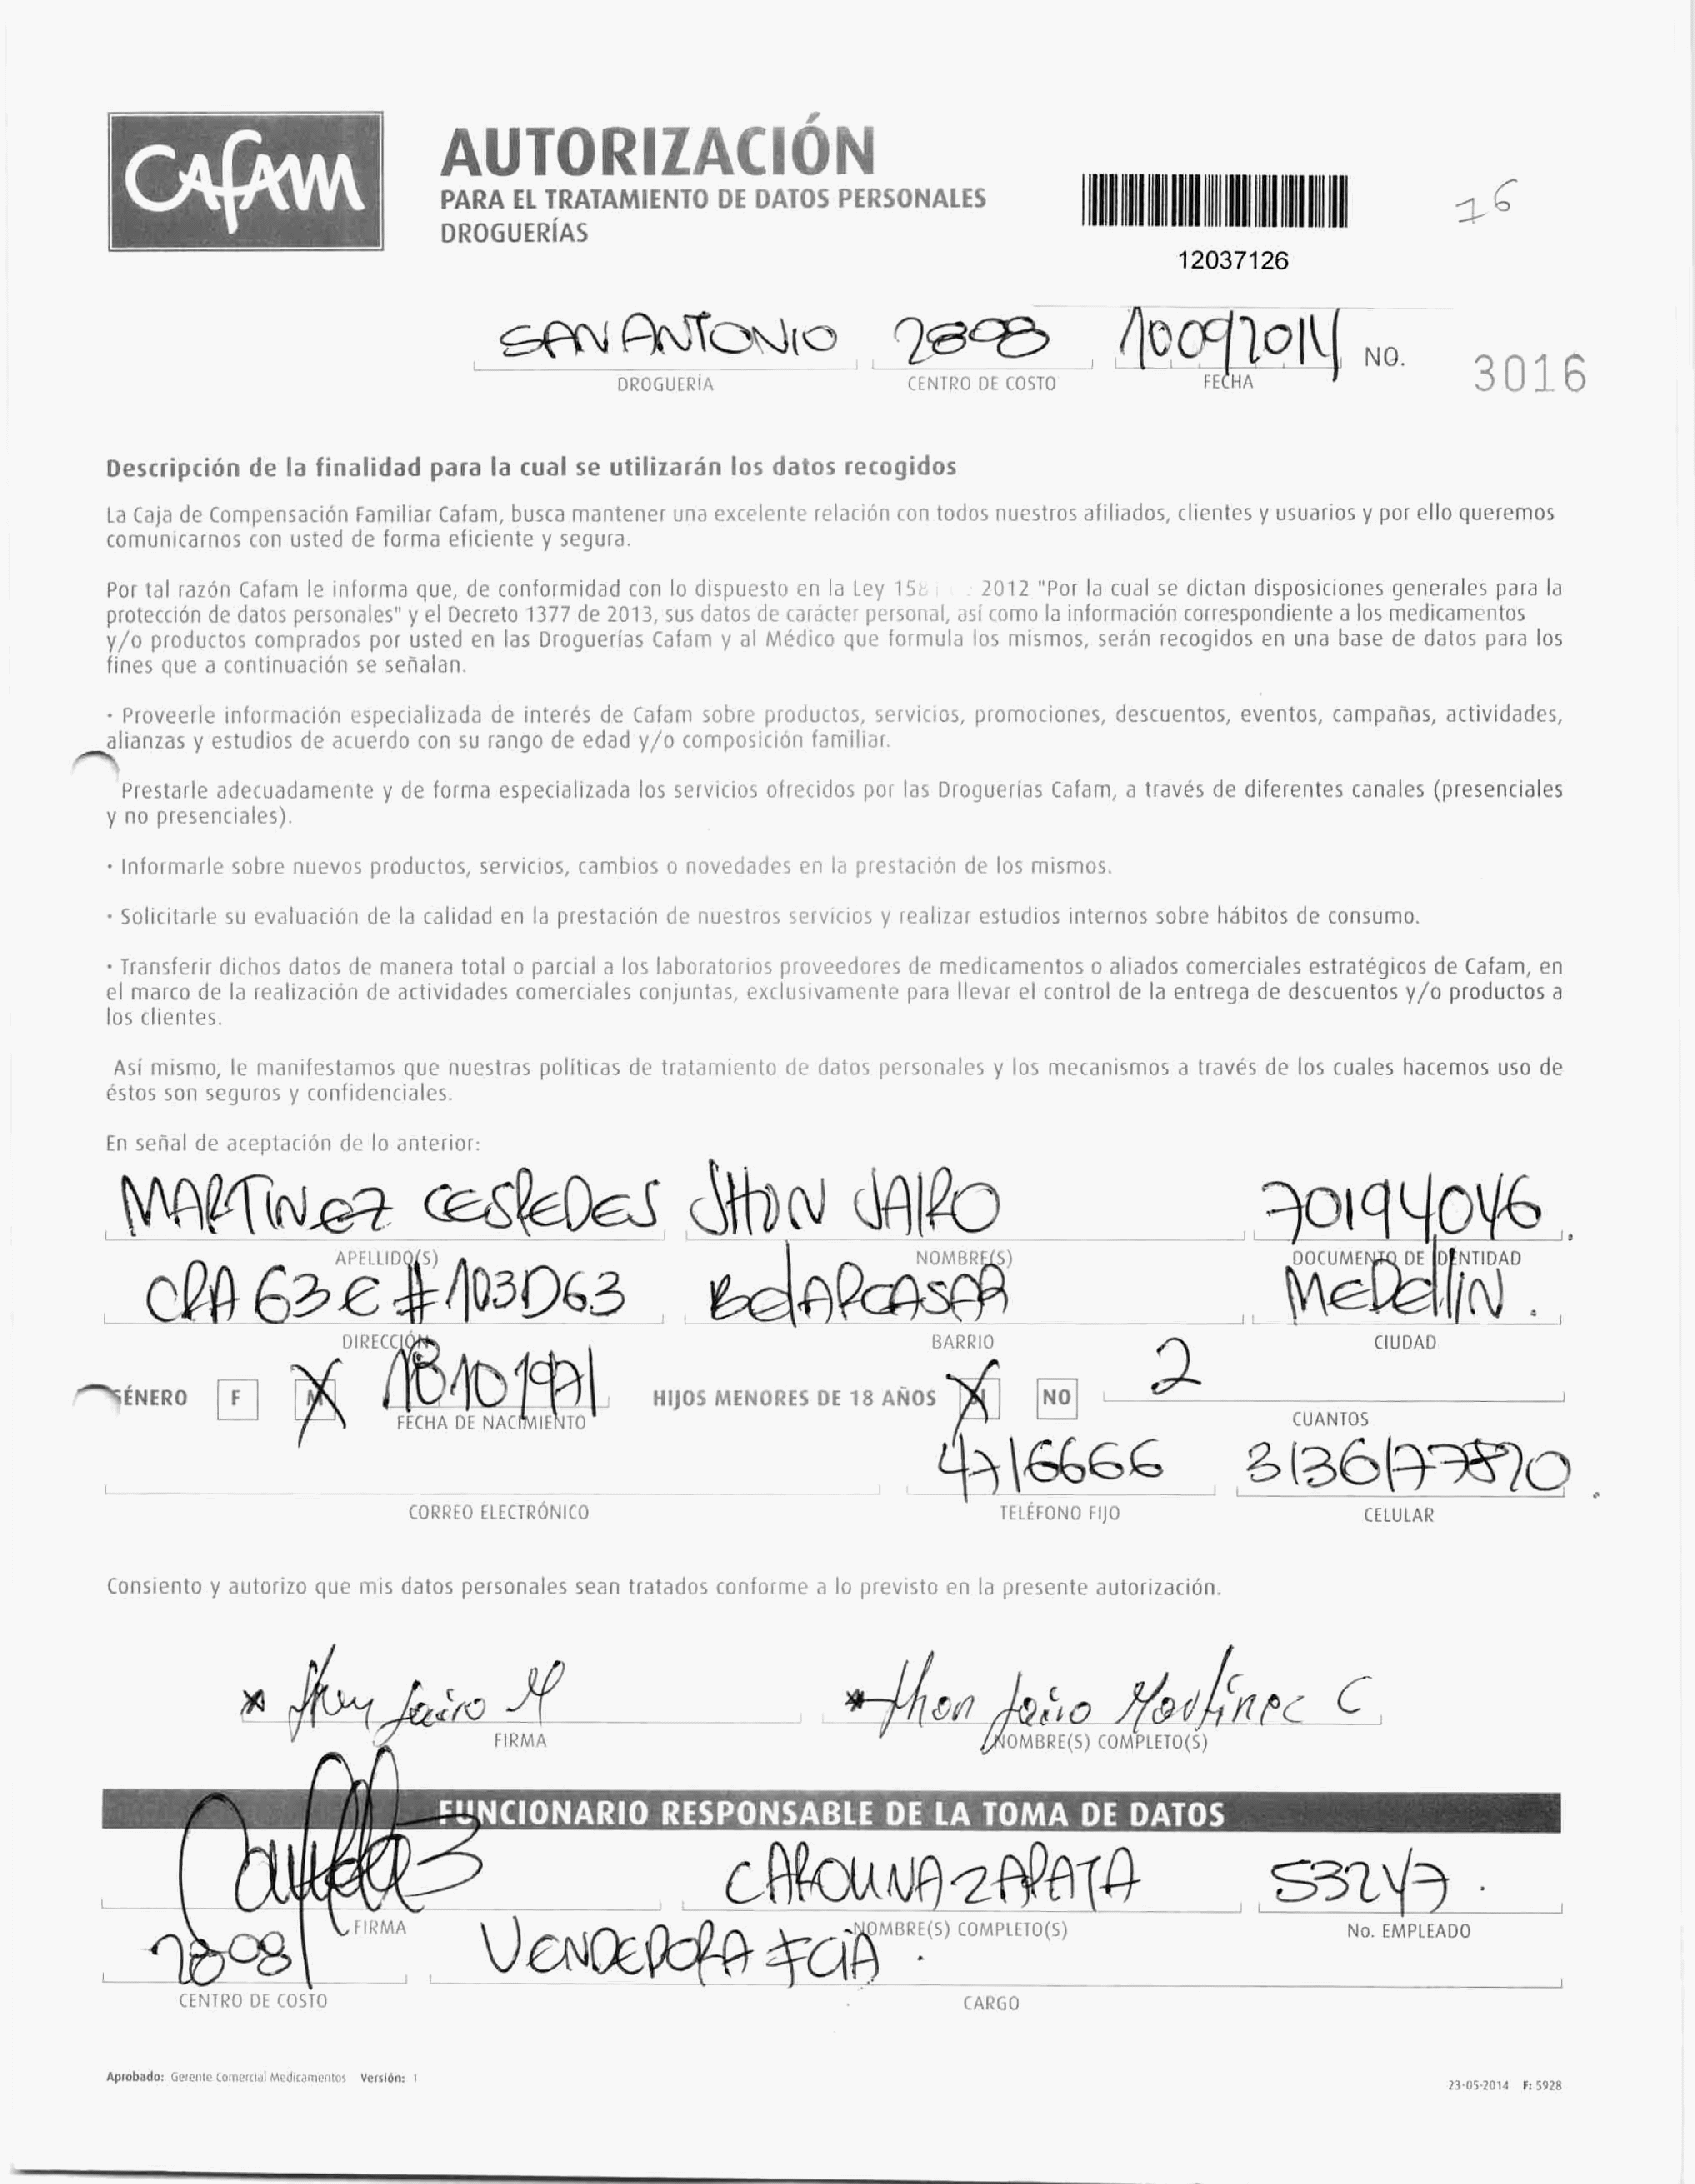 CAFAM
AUTORIZACIÓN
PARA EL TRATAMIENTO DE DATOS PERSONALES
DROGUERÍAS
12037126
76
SAN ANTONIO 2808 10092014 NO. 3016
DROGUERÍA CENTRO DE COSTO FECHA
Descripción de la finalidad para la cual se utilizarán los datos recogidos
La Caja de Compensación Familiar Cafam, busca mantener una excelente relación con todos nuestros afiliados, clientes y usuarios y por ello queremos
comunicarnos con usted de forma eficiente y segura.
Por tal razón Cafam le informa que, de conformidad con lo dispuesto en la Ley 2012 "Por la cual se dictan disposiciones generales para la
protección de datos personales" y el Decreto 1377 de 2013, sus datos de carácter personal, así como la información correspondiente a los medicamentos
y/o productos comprados por usted en las Droguerías Cafam y al Médico que formula los mismos, serán recogidos en una base de datos para los
fines que a continuación se señalan.
· Proveerle información especializada de interés de Cafam sobre productos, servicios, promociones, descuentos, eventos, campañas, actividades,
alianzas y estudios de acuerdo con su rango de edad y/o composición familiar.
Prestarle adecuadamente y de forma especializada los servicios ofrecidos por las Droguerías Cafam, a través de diferentes canales (presenciales
y no presenciales).
· Informarle sobre nuevos productos, servicios, cambios o novedades en la prestación de los mismos.
· Solicitarle su evaluación de la calidad en la prestación de nuestros servicios y realizar estudios internos sobre hábitos de consumo.
· Transferir dichos datos de manera total o parcial a los laboratorios proveedores de medicamentos o aliados comerciales estratégicos de Cafam, en
el marco de la realización de actividades comerciales conjuntas, exclusivamente para llevar el control de la entrega de descuentos y/o productos a
los clientes.
Así mismo, le manifestamos que nuestras políticas de tratamiento de datos personales y los mecanismos a través de los cuales hacemos uso de
éstos son seguros y confidenciales.
En señal de aceptación de lo anterior:
MARTINEZ CESPEDES JHON JAIRO 70194046.
APELLIDO(S) NOMBRE(S) DOCUMENTO DE IDENTIDAD
CRA 63 E # 103D63 BELARCASAR MEDELLIN.
DIRECCIÓN BARRIO CIUDAD
GÉNERO F M X 18101971 HIJOS MENORES DE 18 AÑOS X NO 2
FECHA DE NACIMIENTO CUANTOS
4716666 3136177870.
CORREO ELECTRÓNICO TELÉFONO FIJO CELULAR
Consiento y autorizo que mis datos personales sean tratados conforme a lo previsto en la presente autorización.
* Jhon Jairo M * Jhon Jairo Martinez C
FIRMA NOMBRE(S) COMPLETO(S)
FUNCIONARIO RESPONSABLE DE LA TOMA DE DATOS
CAROLINA ZAPATA 53247.
FIRMA NOMBRE(S) COMPLETO(S) No. EMPLEADO
2808 VENDEDORA FCIA.
CENTRO DE COSTO CARGO
Aprobado: Gerente Comercial Medicamentos Versión: 1
23-05-2014 F: 5928